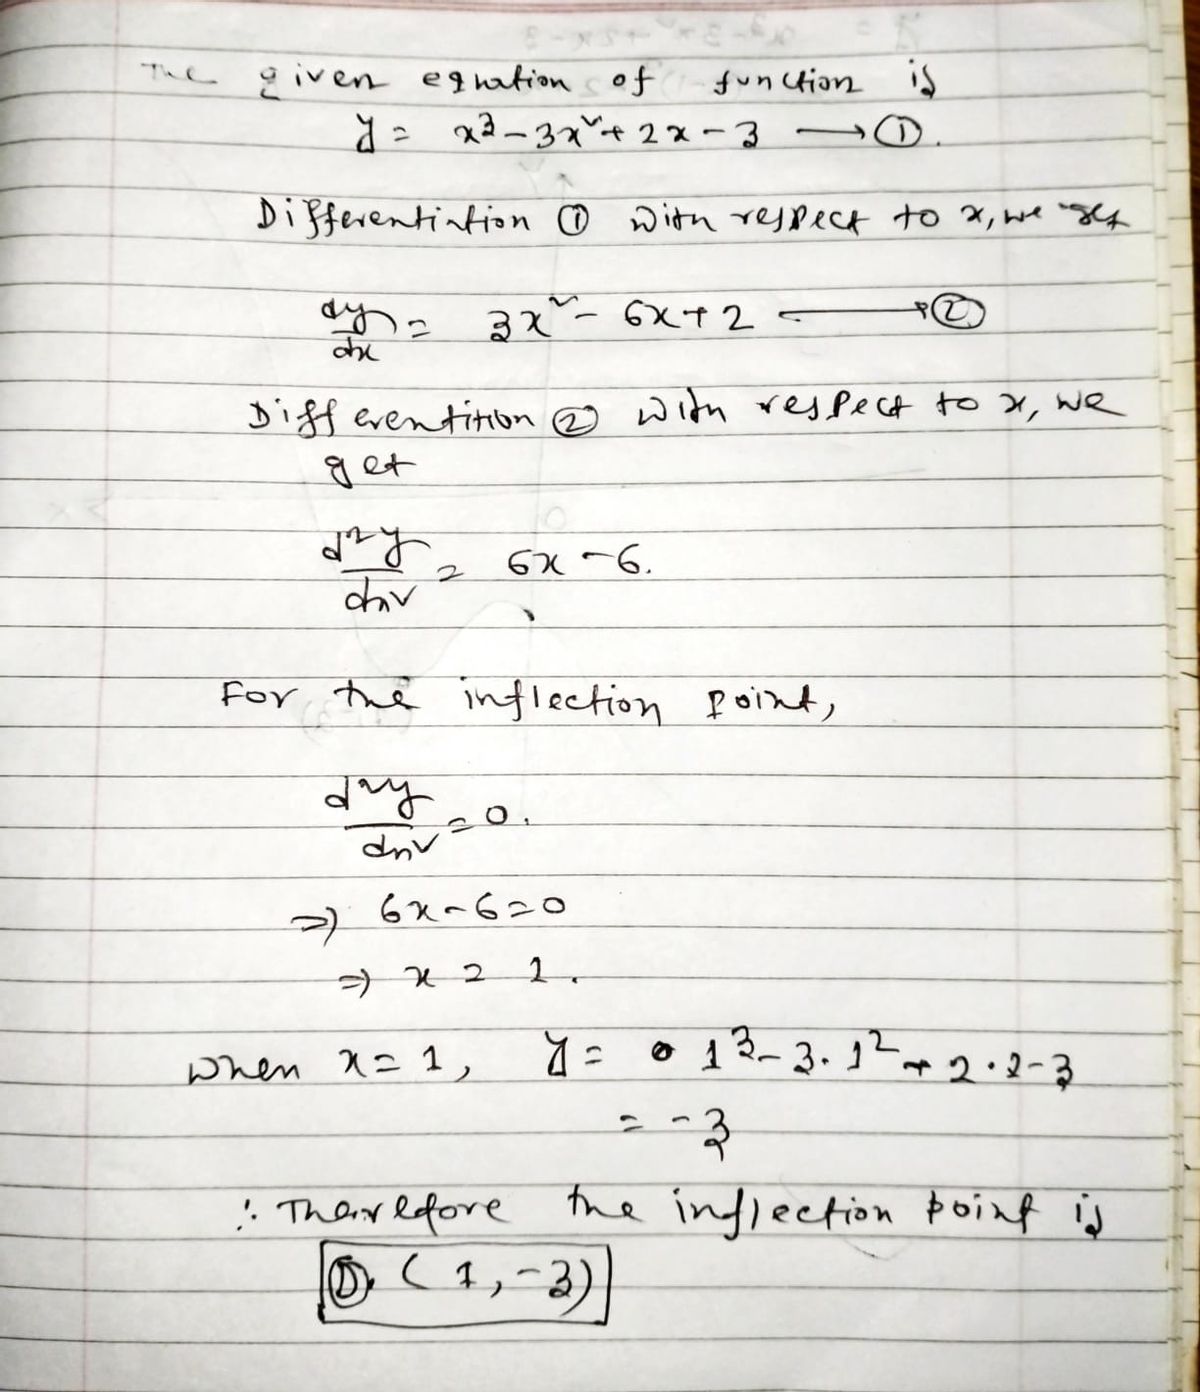 The given equation of function is
y = x³ - 3x² + 2x - 3 → ①.
Differentiation ① with respect to x, we get
dy/dx = 3x² - 6x + 2 → ②
Differentition ② with respect to x, we
get
d²y/dx² = 6x - 6.
For the inflection point,
d²y/dx² = 0.
⇒ 6x - 6 = 0
⇒ x = 1.
when x = 1, y = 1³ - 3.1² + 2.1 - 3
= -3
∴ Therefore the inflection point is
Ⓓ. (1, -3)